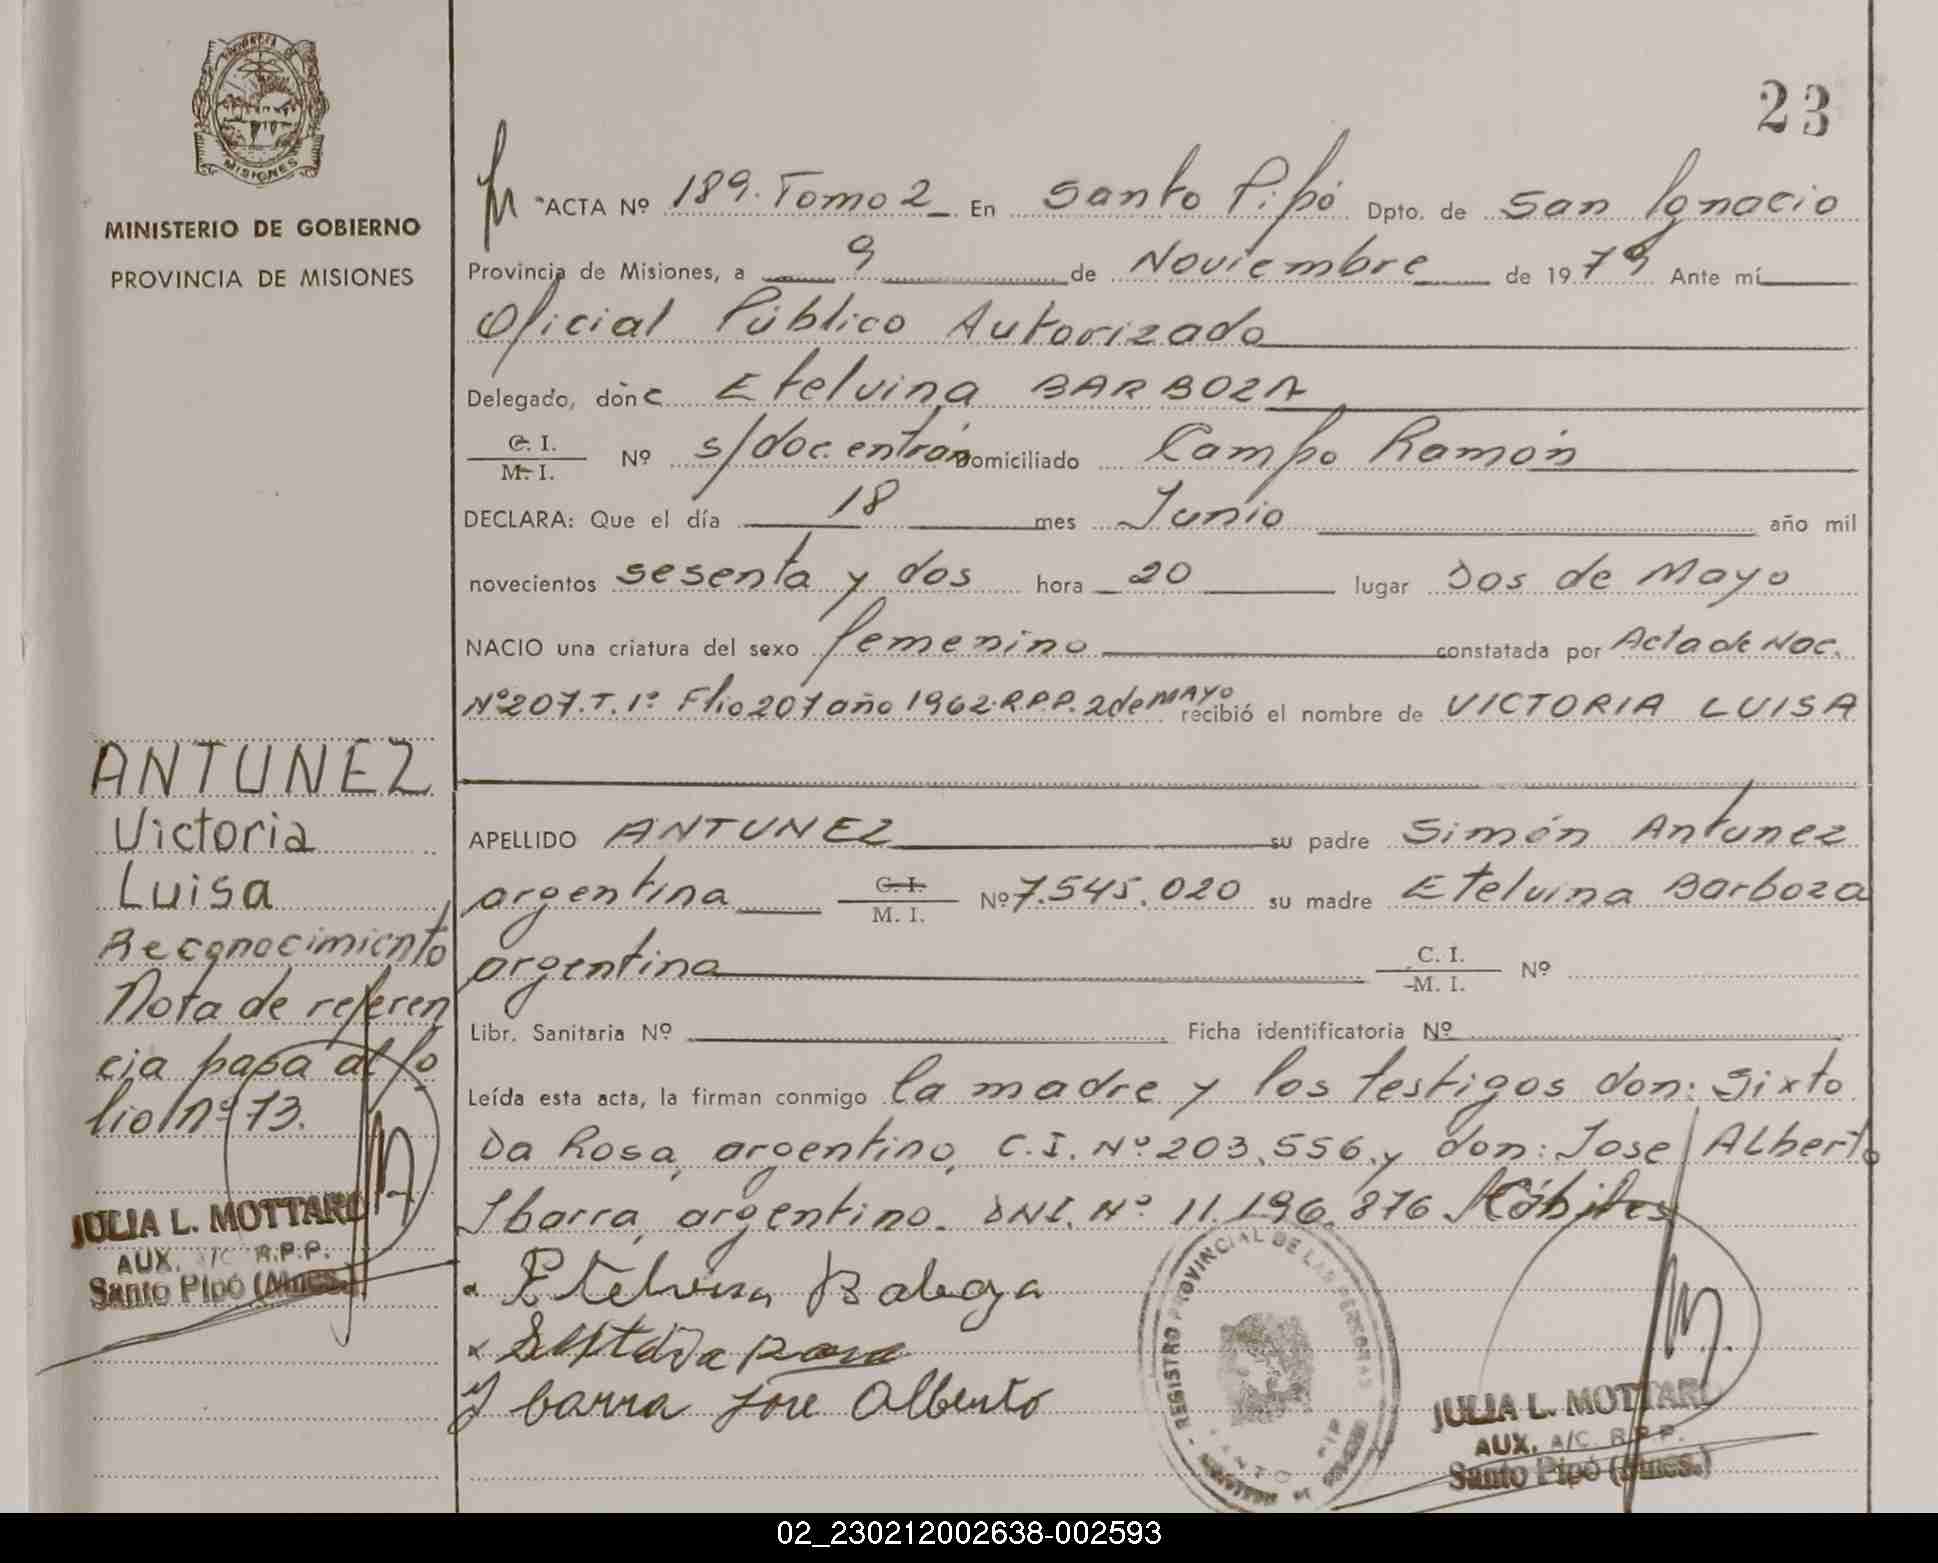 PROVINCIA DE
MISIONES
MINISTERIO DE GOBIERNO
PROVINCIA DE MISIONES
23
ACTA Nº 189. Tomo 2 En Santo Pipó Dpto. de San Ignacio
Provincia de Misiones, a 9 de Noviembre de 1979 Ante mí
Oficial Público Autorizado
Delegado, doñ Etelvina BARBOZA
C. I.
M. I.
Nº s/doc. entrán domiciliado Campo Ramón
DECLARA: Que el día 18 mes Junio año mil
novecientos sesenta y dos hora 20 lugar Dos de Mayo
NACIO una criatura del sexo femenino constatada por Acta de Nac.
Nº 207. T. 1º Flio 207 año 1962. R.P.P. 2 de MAYO recibió el nombre de VICTORIA LUISA
APELLIDO ANTUNEZ su padre Simón Antunez
argentina C. I. M. I. Nº 7.545.020 su madre Etelvina Barboza
argentina C. I. M. I. Nº
Libr. Sanitaria Nº Ficha identificatoria Nº
Leída esta acta, la firman conmigo la madre y los testigos don: Sixto
Da Rosa, argentino, C.I. Nº 203.556. y don: Jose Alberto
Ibarra, argentino. DNI. Nº 11.196.876 Hábiles
Etelvina Baboza
Ybarra Jose Alberto
ANTUNEZ
Victoria
Luisa
Reconocimiento
Nota de referen
cia pasa al fo
lio nº 73.
JULIA L. MOTTARO
AUX. A/C R.P.P.
Santo Pipó (Mnes.)
REGISTRO PROVINCIAL DE LAS PERSONAS
JULIA L. MOTTARO
AUX. A/C. R.P.P.
Santo Pipó (Mnes.)
02_230212002638-002593